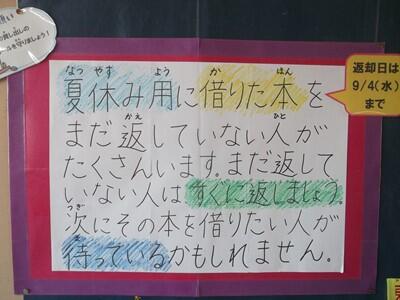 貸し出しの
ールを守りましょう!
返却日は
9/4(水)
まで
なつ やす よう か ほん
夏休み用に借りた本を
かえ ひと
まだ返していない人が
たくさんいます。まだ返して
いない人は、すぐに返しましょう。
つぎ
次にその本を借りたい人が
待っているかもしれません。